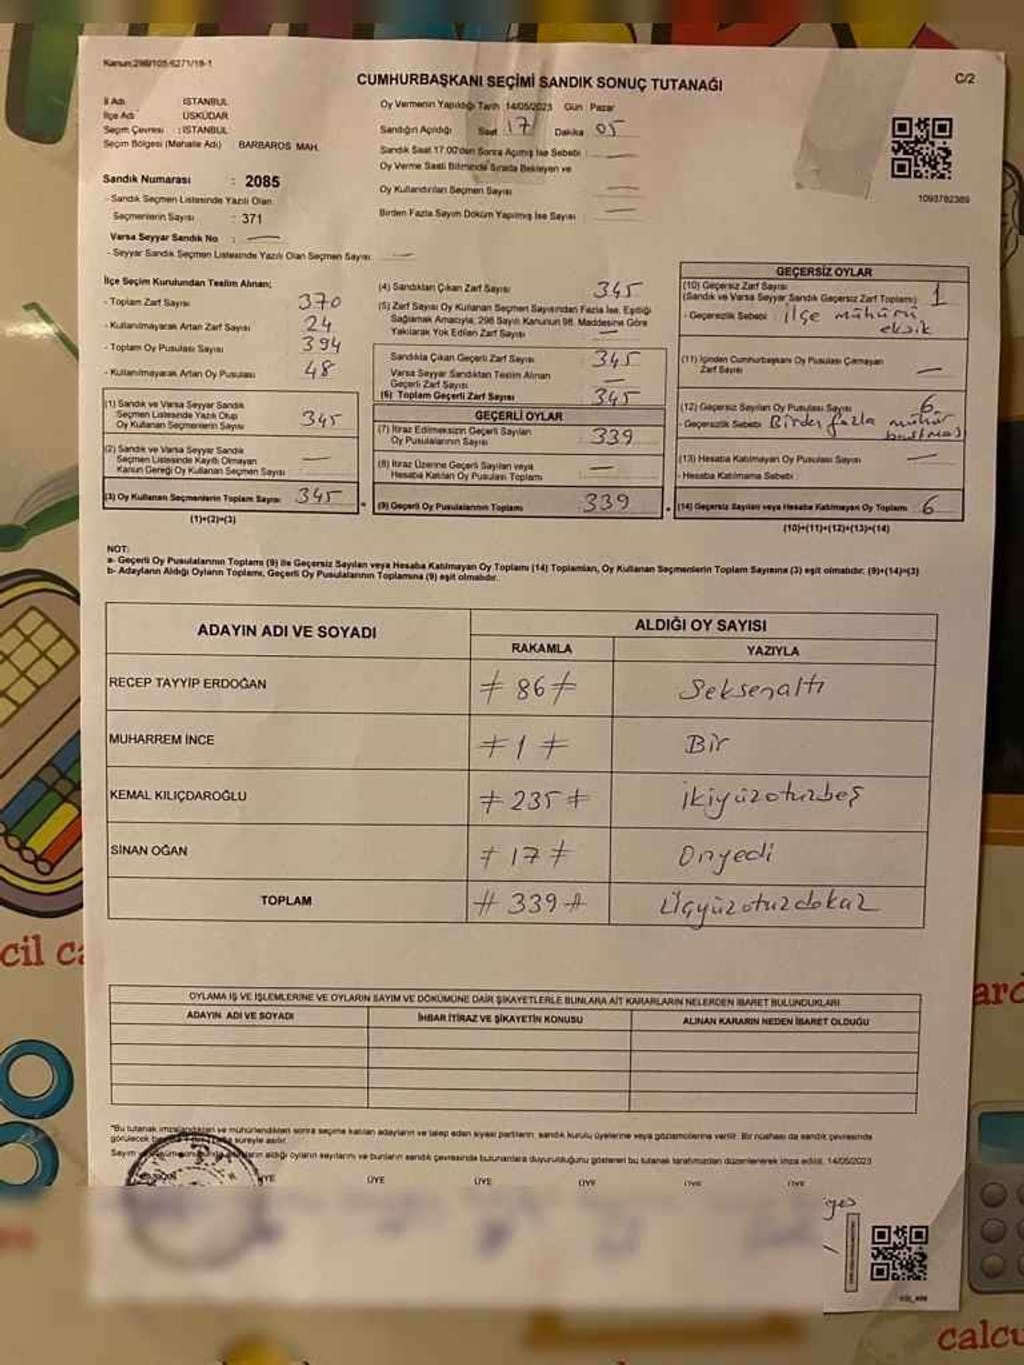 Kanun:298/105-6271/18-1
CUMHURBAŞKANI SEÇİMİ SANDIK SONUÇ TUTANAĞI
C/2
İl Adı İSTANBUL
İlçe Adı ÜSKÜDAR
Seçim Çevresi : İSTANBUL
Seçim Bölgesi (Mahalle Adı) BARBAROS MAH.
Sandık Numarası : 2085
- Sandık Seçmen Listesinde Yazılı Olan
Seçmenlerin Sayısı : 371
Varsa Seyyar Sandık No : —
- Seyyar Sandık Seçmen Listesinde Yazılı Olan Seçmen Sayısı: —
Oy Vermenin Yapıldığı Tarih 14/05/2023 Gün : Pazar
Sandığın Açıldığı Saat 17 Dakika 05
Sandık Saat 17.00'den Sonra Açılmış İse Sebebi : —
Oy Verme Saati Bitiminde Sırada Bekleyen ve
Oy Kullandırılan Seçmen Sayısı —
Birden Fazla Sayım Döküm Yapılmış İse Sayısı —
1093782389
İlçe Seçim Kurulundan Teslim Alınan;
- Toplam Zarf Sayısı 370
- Kullanılmayarak Artan Zarf Sayısı 24
- Toplam Oy Pusulası Sayısı 394
- Kullanılmayarak Artan Oy Pusulası 48
(1) Sandık ve Varsa Seyyar Sandık
Seçmen Listesinde Yazılı Olup
Oy Kullanan Seçmenlerin Sayısı 345
(2) Sandık ve Varsa Seyyar Sandık
Seçmen Listesinde Kayıtlı Olmayan
Kanun Gereği Oy Kullanan Seçmen Sayısı —
(3) Oy Kullanan Seçmenlerin Toplam Sayısı 345
(1)+(2)=(3)
(4) Sandıktan Çıkan Zarf Sayısı 345
(5) Zarf Sayısı Oy Kullanan Seçmen Sayısından Fazla İse, Eşitliği
Sağlamak Amacıyla, 298 Sayılı Kanunun 98. Maddesine Göre
Yakılarak Yok Edilen Zarf Sayısı —
Sandıkta Çıkan Geçerli Zarf Sayısı 345
Varsa Seyyar Sandıktan Teslim Alınan
Geçerli Zarf Sayısı —
(6) Toplam Geçerli Zarf Sayısı 345
GEÇERLİ OYLAR
(7) İtiraz Edilmeksizin Geçerli Sayılan
Oy Pusulalarının Sayısı 339
(8) İtiraz Üzerine Geçerli Sayılan veya
Hesaba Katılan Oy Pusulası Toplamı —
(9) Geçerli Oy Pusulalarının Toplamı 339
GEÇERSİZ OYLAR
(10) Geçersiz Zarf Sayısı
(Sandık ve Varsa Seyyar Sandık Geçersiz Zarf Toplamı) 1
- Geçersizlik Sebebi : İlçe mühürü
eksik
(11) İçinden Cumhurbaşkanı Oy Pusulası Çıkmayan
Zarf Sayısı —
(12) Geçersiz Sayılan Oy Pusulası Sayısı 6
- Geçersizlik Sebebi Birden fazla mühür
(13) Hesaba Katılmayan Oy Pusulası Sayısı —
- Hesaba Katılmama Sebebi :
(14) Geçersiz Sayılan veya Hesaba Katılmayan Oy Toplamı 6
(10)+(11)+(12)+(13)=(14)
NOT:
a- Geçerli Oy Pusulalarının Toplamı (9) ile Geçersiz Sayılan veya Hesaba Katılmayan Oy Toplamı (14) Toplamları, Oy Kullanan Seçmenlerin Toplam Sayısına (3) eşit olmalıdır. (9)+(14)=(3)
b- Adayların Aldığı Oyların Toplamı, Geçerli Oy Pusulalarının Toplamına (9) eşit olmalıdır.
ADAYIN ADI VE SOYADI ALDIĞI OY SAYISI
RAKAMLA YAZIYLA
RECEP TAYYİP ERDOĞAN ≠ 86 ≠ Seksenaltı
MUHARREM İNCE ≠ 1 ≠ Bir
KEMAL KILIÇDAROĞLU ≠ 235 ≠ İkiyüzotuzbeş
SİNAN OĞAN ≠ 17 ≠ Onyedi
TOPLAM # 339 # Üçyüzotuzdokuz
OYLAMA İŞ VE İŞLEMLERİNE VE OYLARIN SAYIM VE DÖKÜMÜNE DAİR ŞİKAYETLERLE BUNLARA AİT KARARLARIN NELERDEN İBARET BULUNDUKLARI
ADAYIN ADI VE SOYADI İHBAR İTİRAZ VE ŞİKAYETİN KONUSU ALINAN KARARIN NEDEN İBARET OLDUĞU
"Bu tutanak imzalandıktan ve mühürlendikten sonra seçime katılan adayların ve talep eden siyasi partilerin, sandık kurulu üyelerine veya gözlemcilerine verilir. Bir nüshası da sandık çevresinde
görülecek süreyle asılır.
Sayım aldığı oyların sayılarını ve bunların sandık çevresinde bulunanlara duyurulduğunu gösteren bu tutanak tarafımızdan düzenlenerek imza edildi. 14/05/2023
ÜYE ÜYE ÜYE ÜYE ÜYE
cil ca
calcu